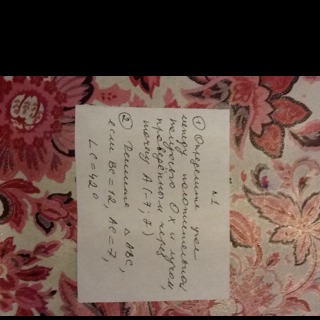 в1
① Определите угол
между положительной
полуосью Ox и лучом,
проведённым через
точку A(-7; 7)
② Решите △ ABC,
если BC = 12, AC = 7,
∠C = 42°